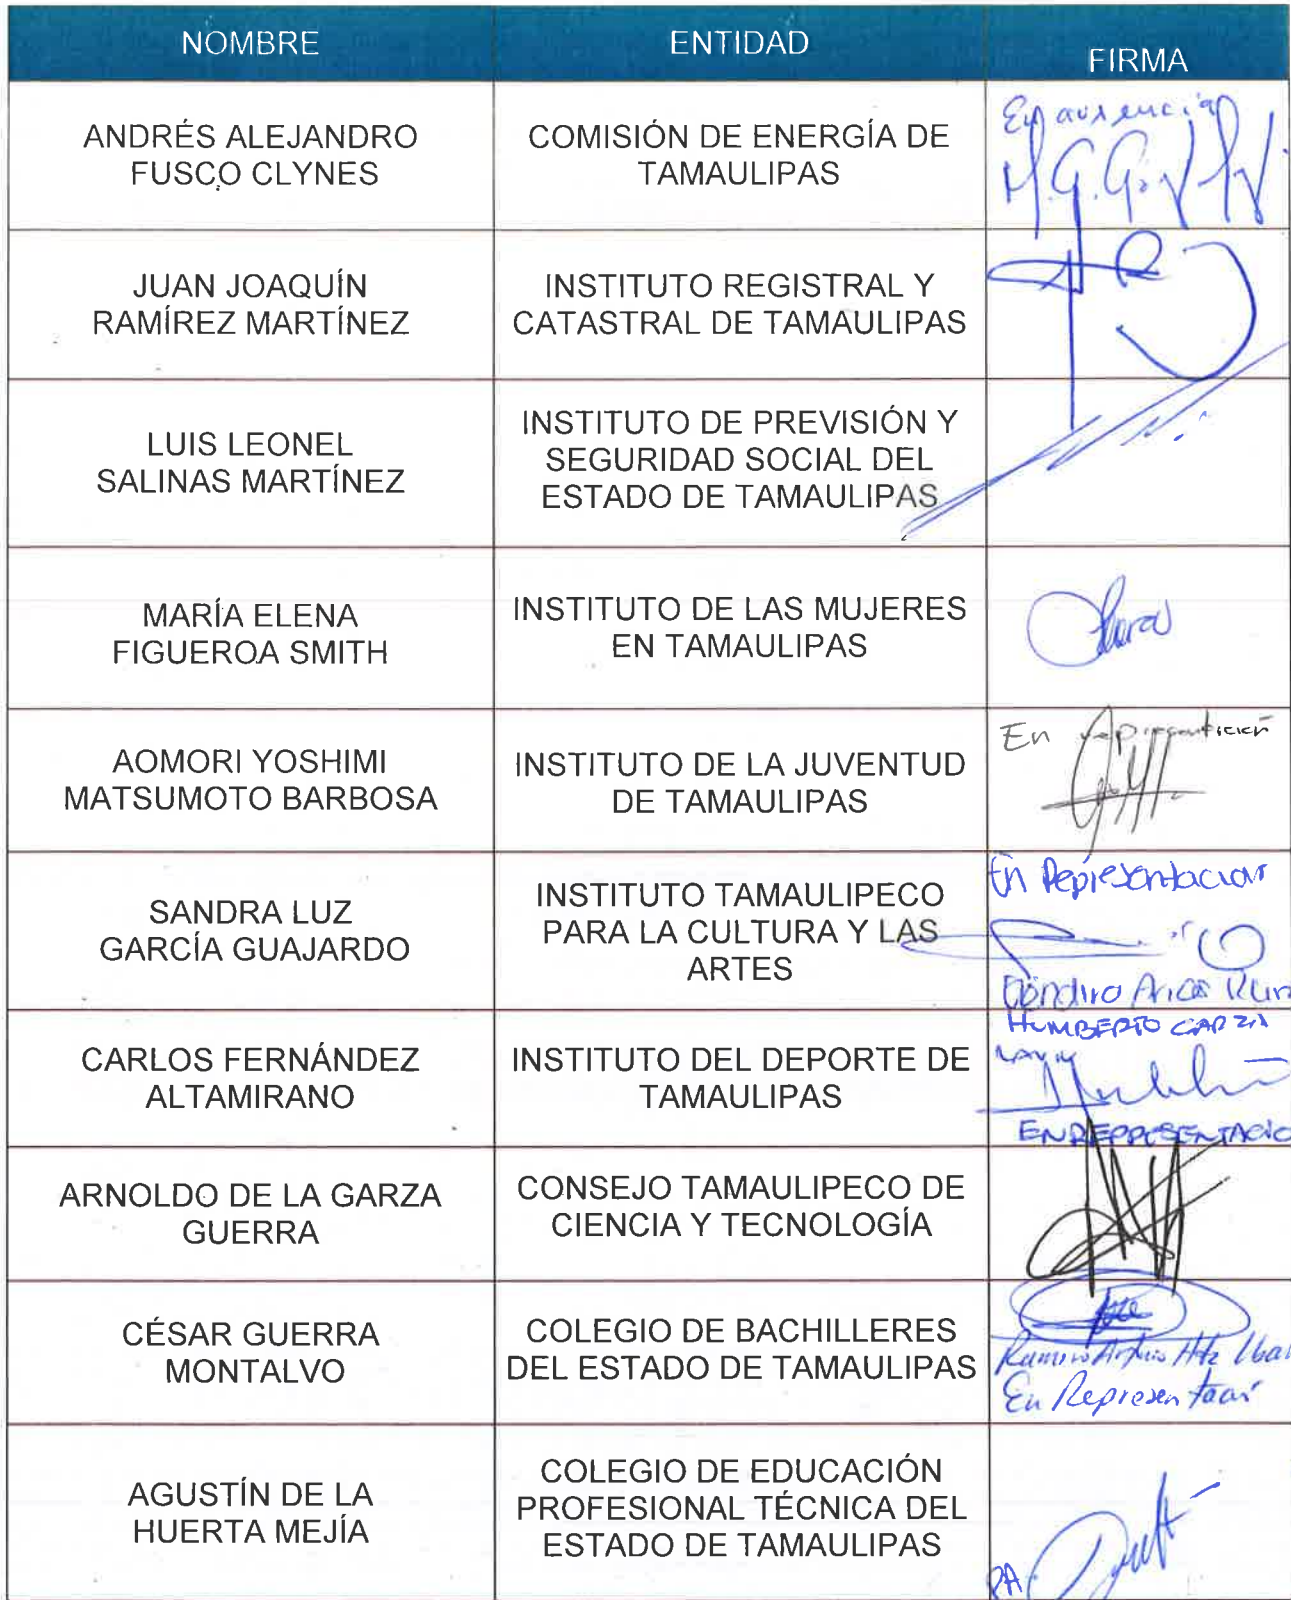 NOMBRE
ENTIDAD
FIRMA
ANDRÉS ALEJANDRO
FUSCO CLYNES
COMISIÓN DE ENERGÍA DE
TAMAULIPAS
En ausencia
JUAN JOAQUÍN
RAMÍREZ MARTÍNEZ
INSTITUTO REGISTRAL Y
CATASTRAL DE TAMAULIPAS
LUIS LEONEL
SALINAS MARTÍNEZ
INSTITUTO DE PREVISIÓN Y
SEGURIDAD SOCIAL DEL
ESTADO DE TAMAULIPAS
MARÍA ELENA
FIGUEROA SMITH
INSTITUTO DE LAS MUJERES
EN TAMAULIPAS
AOMORI YOSHIMI
MATSUMOTO BARBOSA
INSTITUTO DE LA JUVENTUD
DE TAMAULIPAS
En representación
SANDRA LUZ
GARCÍA GUAJARDO
INSTITUTO TAMAULIPECO
PARA LA CULTURA Y LAS
ARTES
En Representacion
CARLOS FERNÁNDEZ
ALTAMIRANO
INSTITUTO DEL DEPORTE DE
TAMAULIPAS
HUMBERTO GARZA
EN REPRESENTACIO
ARNOLDO DE LA GARZA
GUERRA
CONSEJO TAMAULIPECO DE
CIENCIA Y TECNOLOGÍA
CÉSAR GUERRA
MONTALVO
COLEGIO DE BACHILLERES
DEL ESTADO DE TAMAULIPAS
Ramiro Arturo Htz
En Representaci
AGUSTÍN DE LA
HUERTA MEJÍA
COLEGIO DE EDUCACIÓN
PROFESIONAL TÉCNICA DEL
ESTADO DE TAMAULIPAS
PA